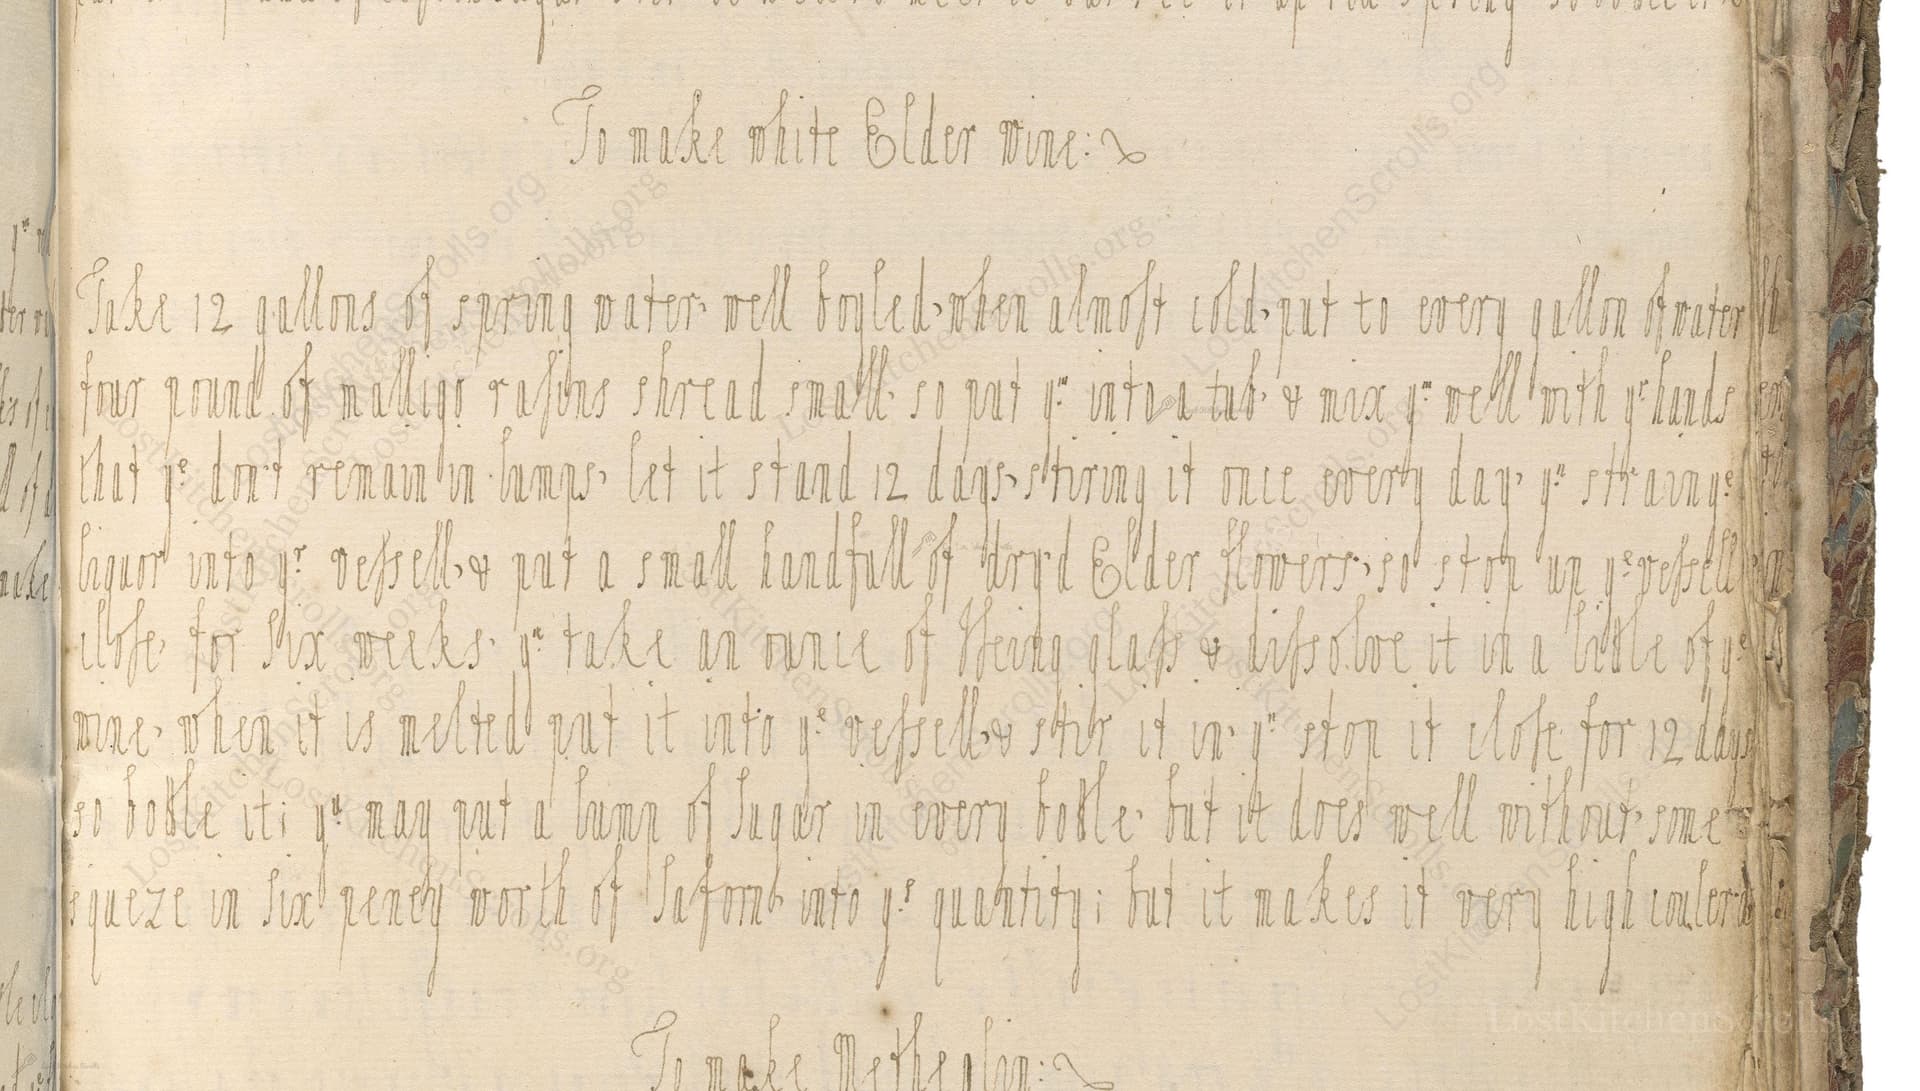 To make white Elder wine:
Take 12 gallons of spring water, well boyled, when almost cold, put to every gallon of water
four pound of malligo rasins shread small, so put ym into a tub, & mix ym well with yr hands
that ye don't remain in lumps, let it stand 12 days, stiring it once every day, yn strain ye
liquor into yr vessell, & put a small handfull of dry'd Elder flowers, so stop up ye vessell
close, for six weeks, yn take an ounce of Iseing glass & dissolve it in a little of ye
wine, when it is melted put it into ye vessell, & stir it in, yn stop it close for 12 days
so bottle it; yu may put a lump of sugar in every bottle, but it does well without, some
squeze in six peney worth of saforn, into ys quantity; but it makes it very high couler'd
To make Metheglin:
LostKitchenScrolls